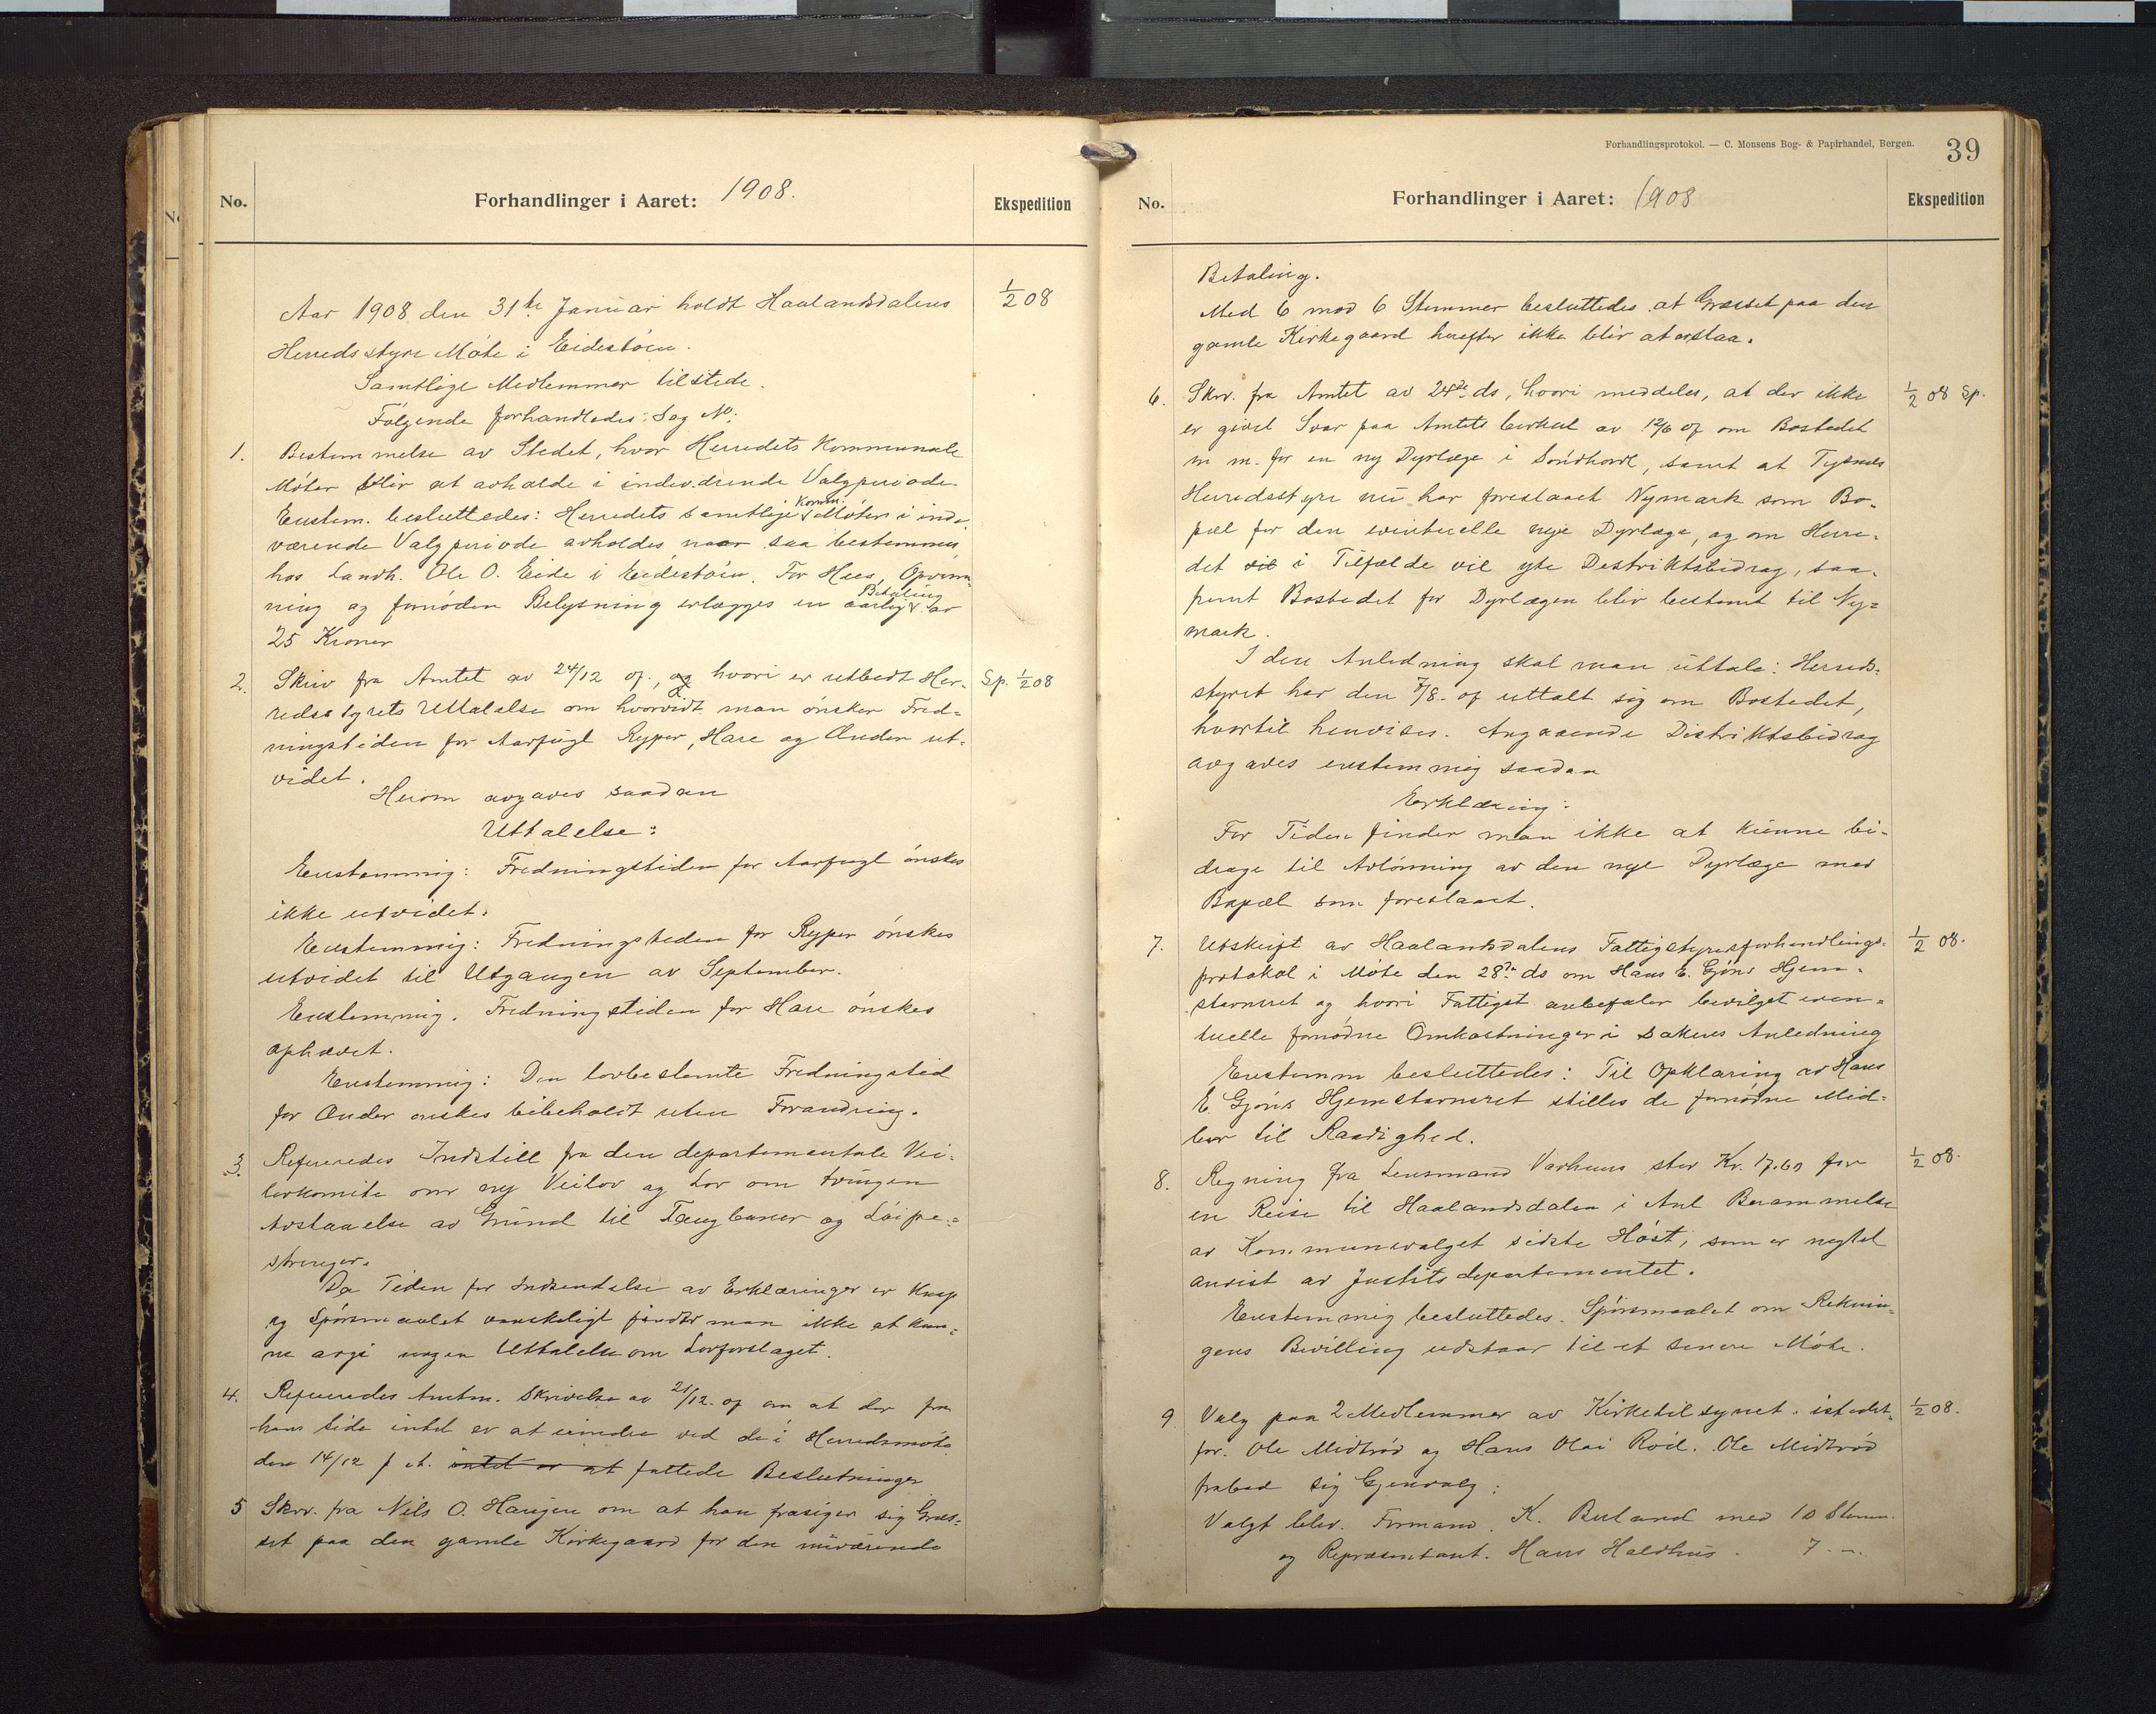 No.
Forhandlinger i Aaret: 1908.
Ekspedition
Aar 1908 den 31te Januar holdt Haalandsdalens
1/2 08
Herredsstyre Møte i Eidestøen.
Samtlige Medlemmer tilstede.
Følgende forhandledes: Sag No:
1. Bestemmelse av Stedet, hvor Herredets Kommunale
Møter blir at avholde i indeværende Valgperiode.
Enstem. besluttedes: Herredets samtlige Komm. Møter i inde-
værende Valgperiode avholdes, naar saa bestemmes,
hos Landh. Ole O. Eide i Eidestøen. For Hus, Opvarm-
ning og fornøden Belysning erlægges en aarlig Betaling av
25 Kroner
2. Skriv fra Amtet av 24/12 of., og hvori er utbedt Her-
Sp. 1/2 08
redsstyrets Uttalelse om hvorvidt man ønsker Fred-
ningstiden for Aarfugl Ryper, Hare og Ænder ut-
videt.
Herom avgaves saadan
Uttalelse:
Enstemmig: Fredningstiden for Aarfugl ønskes
ikke utvidet.
Enstemmig: Fredningstiden for Ryper ønskes
utvidet til Utgangen av September.
Enstemmig. Fredningstiden for Hare ønskes
ophævet.
Enstemmig: Den lovbestemte Fredningstid
for Ænder ønskes bibeholdt uten Forandring.
3. Refereredes Indstill fra den departementale Vei-
lovkomite om ny Veilov og Lov om tvungen
Avstaaelse av Grund til Taugbaner og Løipe-
strenger.
Da Tiden for Indsendelse av Erklæringer er knap
og Spørsmaalet vanskeligt finder man ikke at kun-
ne avgi nogen Uttalelse om Lovforslaget.
4. Refereredes Amtm. Skrivelse av 21/12. of om at der fra
hans Side intet er at erindre ved de i Herredsmøte
den 14/12 f. A. intet er at fattede Beslutninger
5 Skrv. fra Nils O. Haugen om at han frasiger sig Græs-
set paa den gamle Kirkegaard for den nuværende
Forhandlingsprotokol. — C. Monsens Bog- & Papirhandel, Bergen.
39
No.
Forhandlinger i Aaret: 1908
Ekspedition
Betaling.
Med 6 mod 6 Stemmer besluttedes at Græsset paa den
gamle Kirkegaard herefter ikke blir at avslaa.
6. Skrv. fra Amtet av 24de ds, hvori meddeles, at der ikke
1/2 08 Sp.
er givet Svar paa Amtets Cirkul av 12/6 of om Bostedet
m m. for en ny Dyrlæge i Søndhordl, samt at Tysnes
Herredsstyre nu har foreslaaet Nymark som Bo-
pæl for den eventuelle nye Dyrlæge, og om Herre-
det vil i Tilfælde vil yte Destriktsbidrag, saa-
fremt Bostedet for Dyrlægen blir bestemt til Ny-
mark.
I den Anledning skal man uttale: Herreds-
styret har den 7/8. of uttalt sig om Bostedet,
hvortil henvises. Angaaende Distriktsbidrag
avgaves enstemmig saadan
Erklæring:
For Tiden finder man ikke at kunne bi-
drage til Avlønning av den nye Dyrlæge med
Bopæl som foreslaaet.
7. Utskrift av Haalandsdalens Fattigstyresforhandlings-
1/2 08.
protokol i Møte den 28de ds om Hans E. Gjøns Hjem-
stavnsret og hvori Fattigst anbefaler bevilget even-
tuelle fornødne Omkostninger i Sakens Anledning
Enstemm besluttedes: Til Opklaring av Hans
E. Gjøns Hjemstavnsret stilles de fornødne Mid-
ler til Raadighed.
8. Regning fra Lensmand Varhuus stor Kr. 17.62 for
1/2 08.
en Reise til Haalandsdalen i Anl Berammelse
av Kommunevalget sidste Høst, som er negtet
anvist av Justitsdepartementet.
Enstemmig besluttedes. Spørsmaalet om Reknin-
gens Bevilling udstaar til et senere Møte.
9 Valg paa 2 Medlemmer av Kirketilsynet. istedet-
1/2 08.
for. Ole Midtrød og Hans Olai Røil. Ole Midtrød
frabad sig Gjenvalg:
Valgt blev. Formand. K. Buland med 10 Stemm.
og Repræsentant. Hans Haldhus. 7. —